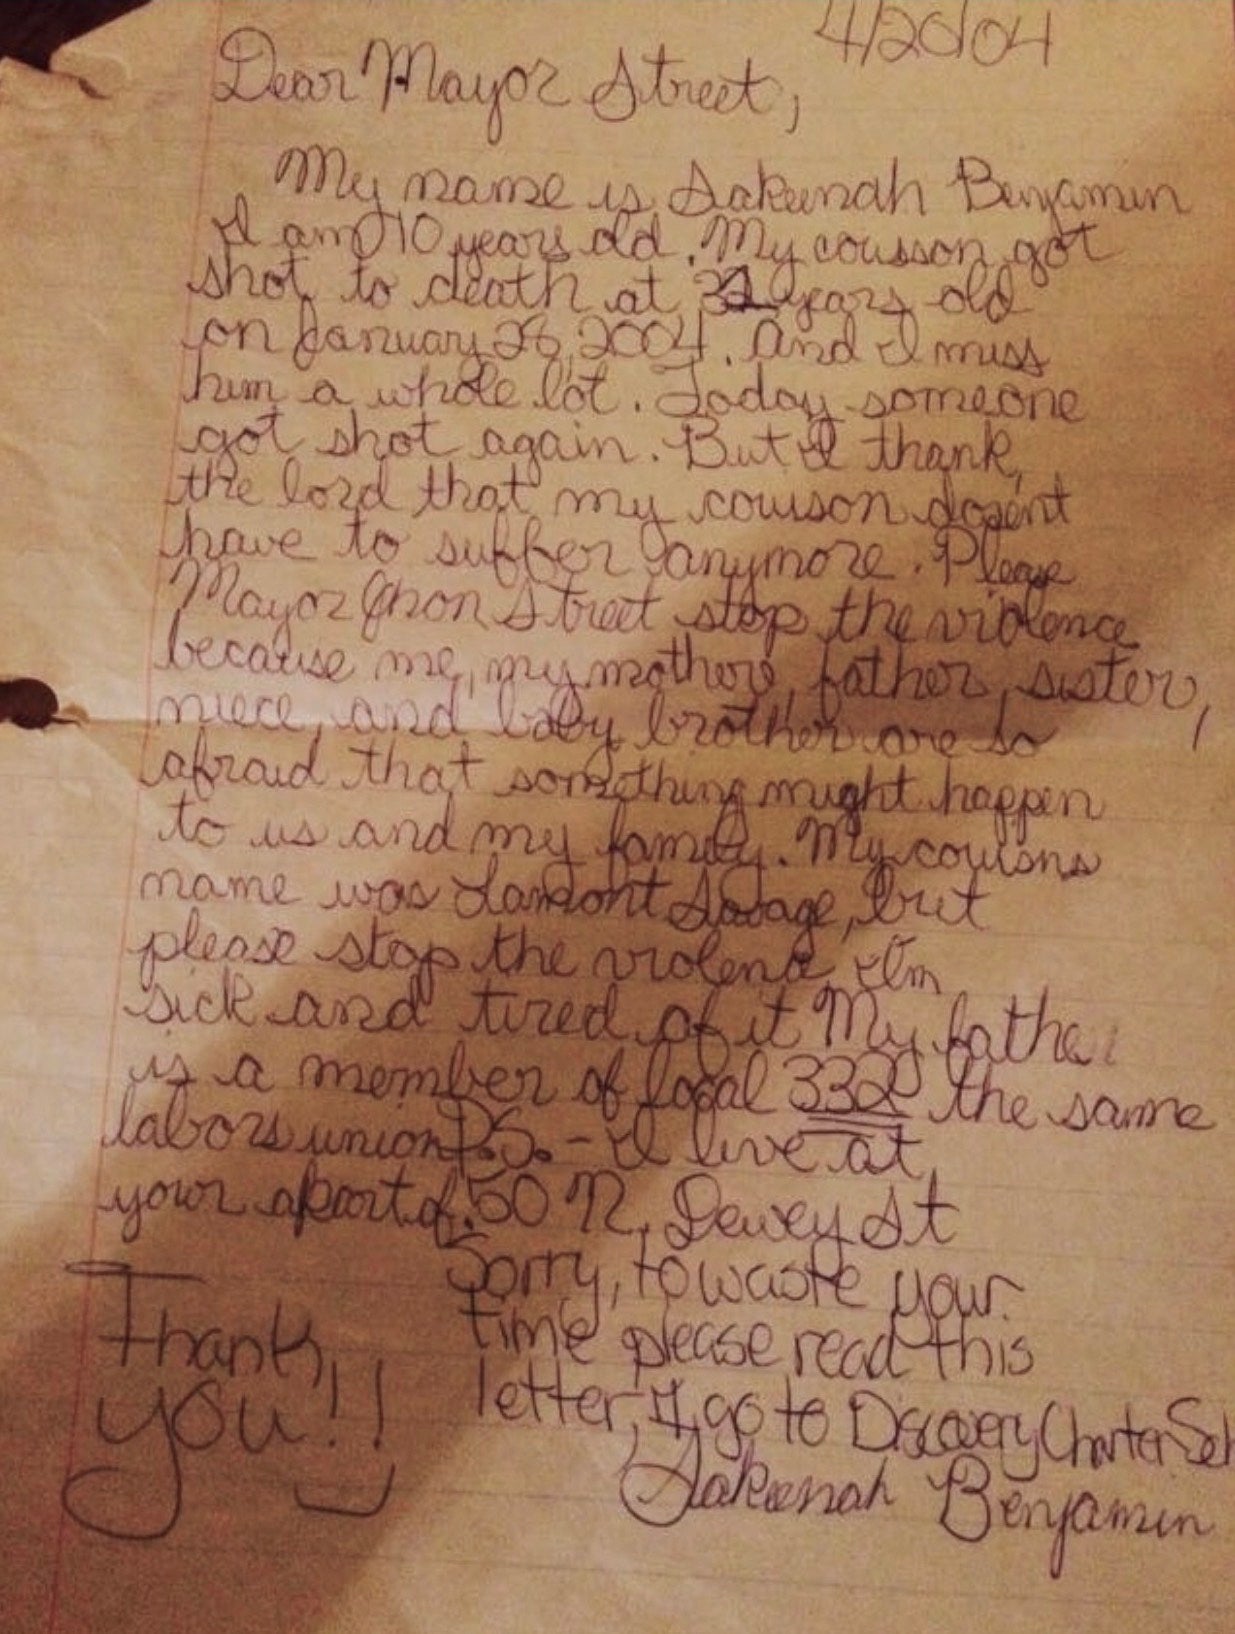 4/20/04
Dear Mayor Street,
My name is Sakeenah Benjamin
I am 10 years old. My cousson got
shot to death at years old
on January 28, 2004. And I miss
him a whole lot. Today someone
got shot again. But I thank
the lord that my couson dosent
have to suffer anymore. Please
Mayor Jhon Street stop the violence
because me, my mothere, father, sister,
niece, and baby brother are so
afraid that something might happen
to us and my family. My cousons
name was Lamont Savage, but
please stop the violence I'm
sick and tired of it My father
is a member of local 332 the same
labors union P.S. - I live at
your apart of 50 N. Dewey St
Sorry, to waste your
time please read this
letter, I go to Discovery Charter Sch
Thank
you!!
Sakeenah Benjamin